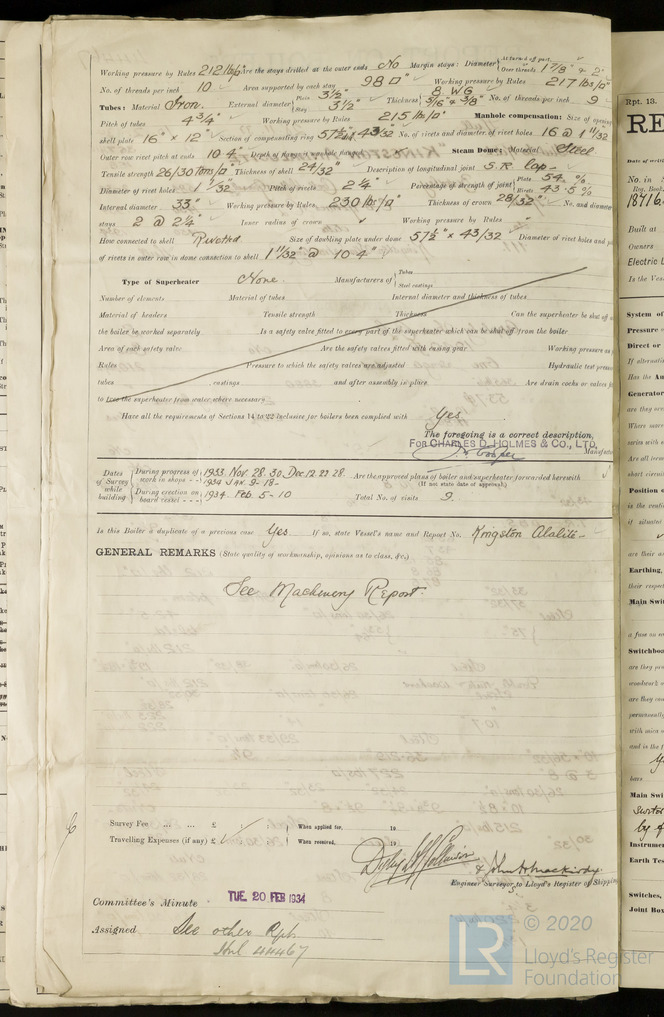 Working pressure by Rules 212 lbs/□" Are the stays drilled at the outer ends No Margin stays: Diameter {At turned off part, Over threads 1 7/8" & 2"
No. of threads per inch 10 Area supported by each stay 98 □" Working pressure by Rules 217 lbs/□"
Tubes: Material Iron. External diameter {Plain 3½" Stay 3½" Thickness {8 WG 5/16" & 3/8" No. of threads per inch 9
Pitch of tubes 4¾" Working pressure by Rules 215 lbs/□" Manhole compensation: Size of opening
shell plate 16" × 12" Section of compensating ring 57½" × 43/32 No. of rivets and diameter of rivet holes 16 @ 1 11/32
Outer row rivet pitch at ends 10 4" Depth of flange if manhole flanged Steam Dome: Material Steel
Tensile strength 26/30 tons/□" Thickness of shell 24/32" Description of longitudinal joint S.R. lap
Diameter of rivet holes 1 1/32" Pitch of rivets 2¼" Percentage of strength of joint {Plate 54 % Rivets 43.5 %
Internal diameter 33" Working pressure by Rules 230 lbs/□" Thickness of crown 28/32" No. and diameter
stays 2 @ 2¼" Inner radius of crown ✓ Working pressure by Rules
How connected to shell Riveted Size of doubling plate under dome 57½" × 43/32 Diameter of rivet holes and
of rivets in outer row in dome connection to shell 1 11/32" @ 10 4"
Type of Superheater None. Manufacturers of {Tubes Steel castings
Number of elements Material of tubes Internal diameter and thickness of tubes
Material of headers Tensile strength Thickness Can the superheater be shut off
the boiler be worked separately Is a safety valve fitted to every part of the superheater which can be shut off from the boiler
Area of each safety valve Are the safety valves fitted with easing gear Working pressure
Rules Pressure to which the safety valves are adjusted Hydraulic test pressure
tubes castings and after assembly in place Are drain cocks or valves
to free the superheater from water where necessary
Have all the requirements of Sections 14 to 22 inclusive for boilers been complied with Yes
The foregoing is a correct description,
For CHARLES D. HOLMES & CO., LTD.
Dates of Survey while building {During progress of work in shops - - 1933 Nov. 28. 30. Dec. 12. 22. 28. 1934 Jan. 9 - 18 - Are the approved plans of boiler and superheater forwarded herewith ✓
(If not state date of approval.)
During erection on board vessel - - - 1934 Feb. 5 - 10 Total No. of visits 9.
Is this Boiler a duplicate of a previous case Yes. If so, state Vessel's name and Report No. Kingston Alalite
GENERAL REMARKS (State quality of workmanship, opinions as to class, &c.)
See Machinery Report.
Survey Fee ... ... ... £ : : When applied for, 19
Travelling Expenses (if any) £ : : When received, 19
Engineer Surveyors to Lloyd's Register of Shipping
Committee's Minute TUE. 20 FEB 1934
Assigned See other Rpt.
Hul 44467
Rpt. 13.
RE
No. in
Reg. Book
18716
Built at
Owners
Electric L
Is the Vess
System of
Pressure
Direct or
If alternatin
Has the Au
Generator
Where more
Position o
if situated
Earthing,
their respect
Main Swit
Switchboa
Main Swi
Instrumen
Earth Test
Switches,
Joint Box
LR © 2020
Lloyd's Register
Foundation